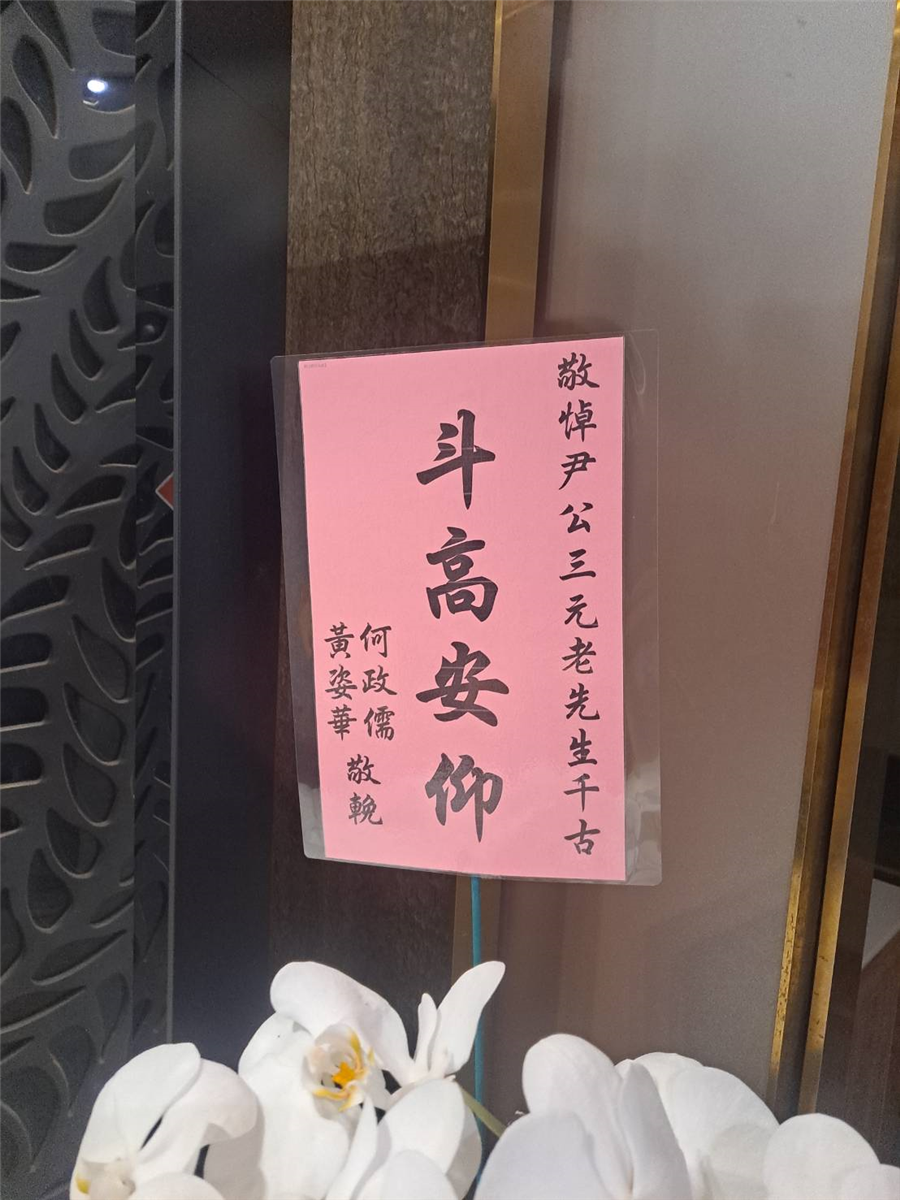 敬悼尹公三元老先生千古
斗高安仰
何政儒
黃姿華
敬輓